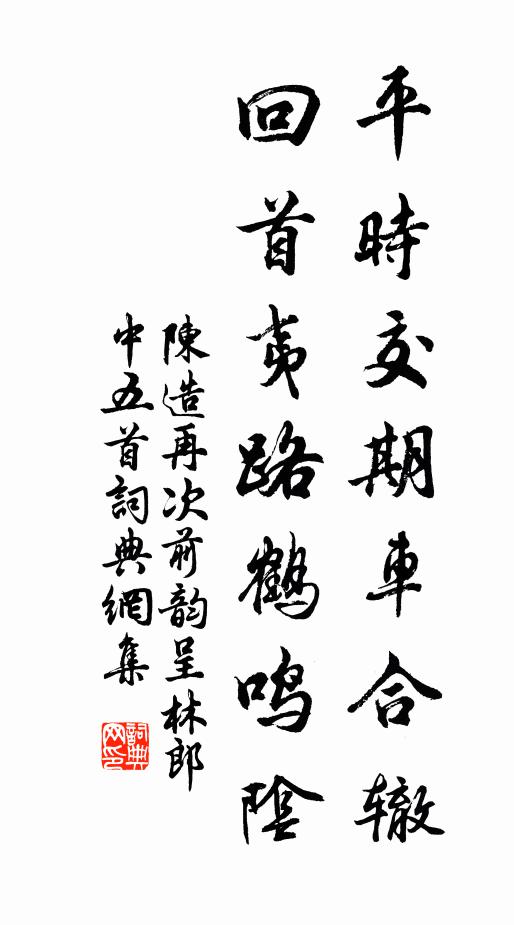 平時交期車合辙
回首夷路鶴鳴陰
陳造再次前韵呈林郎
中五首詞典網集
詞典
网印